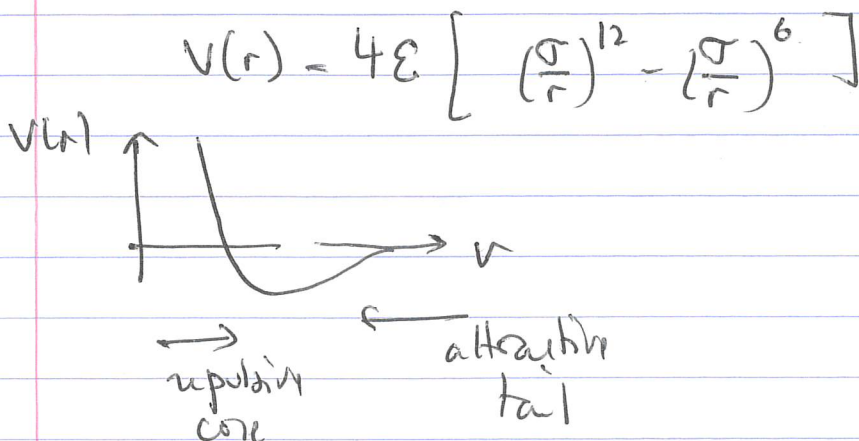 V(r) = 4ε [ (σ/r)^12 - (σ/r)^6 ]
V(r)
r
repulsive
core
attractive
tail